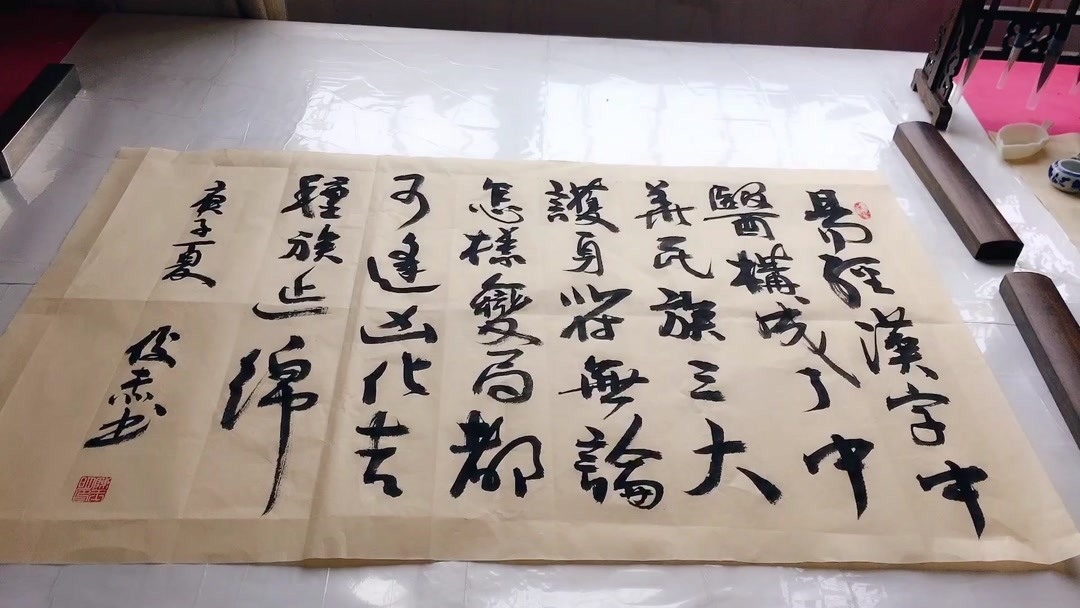 易經漢字中
醫構成了中
華民族三大
護身符無論
怎樣變局都
可逢凶化吉
種族延綿
庚子夏
俊杰书